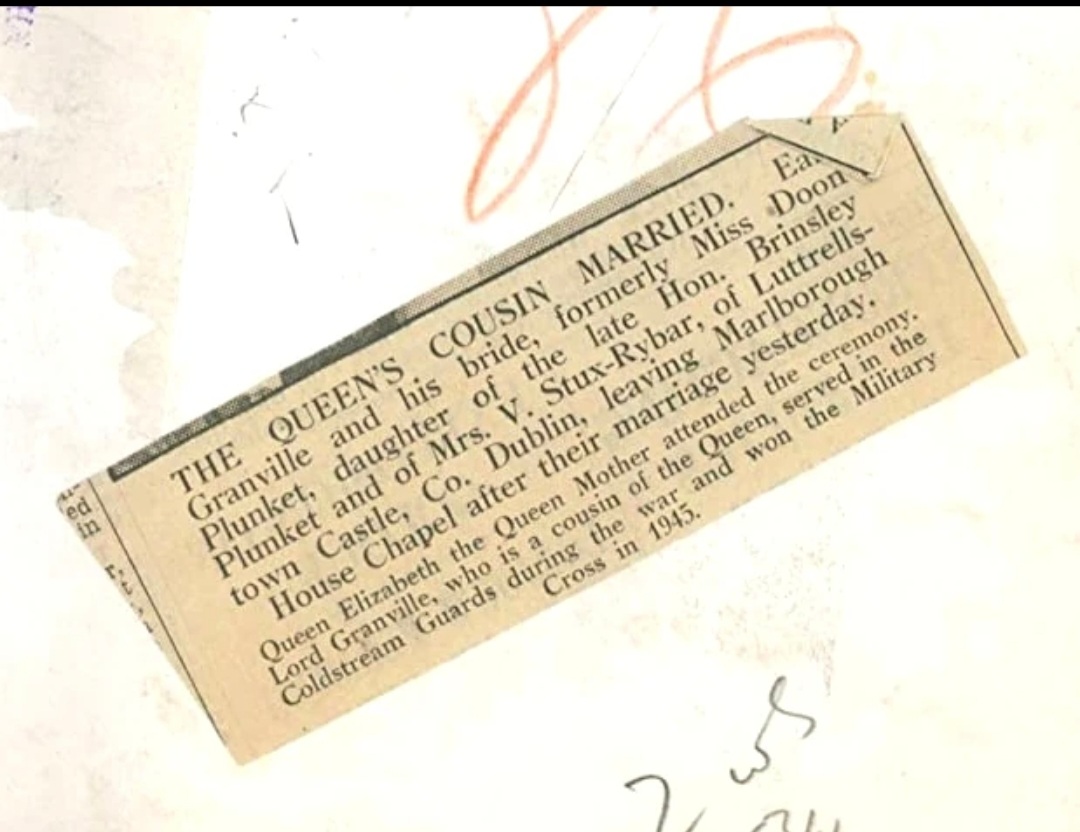 THE QUEEN'S COUSIN MARRIED.
Granville and his bride, formerly Miss Doon
Plunket, daughter of the late Hon. Brinsley
Plunket and of Mrs. V. Stux-Rybar, of Luttrells-
town Castle, Co. Dublin, leaving Marlborough
House Chapel after their marriage yesterday.
Queen Elizabeth the Queen Mother attended the ceremony.
Lord Granville, who is a cousin of the Queen, served in the
Coldstream Guards during the war and won the Military
Cross in 1945.
ed
in